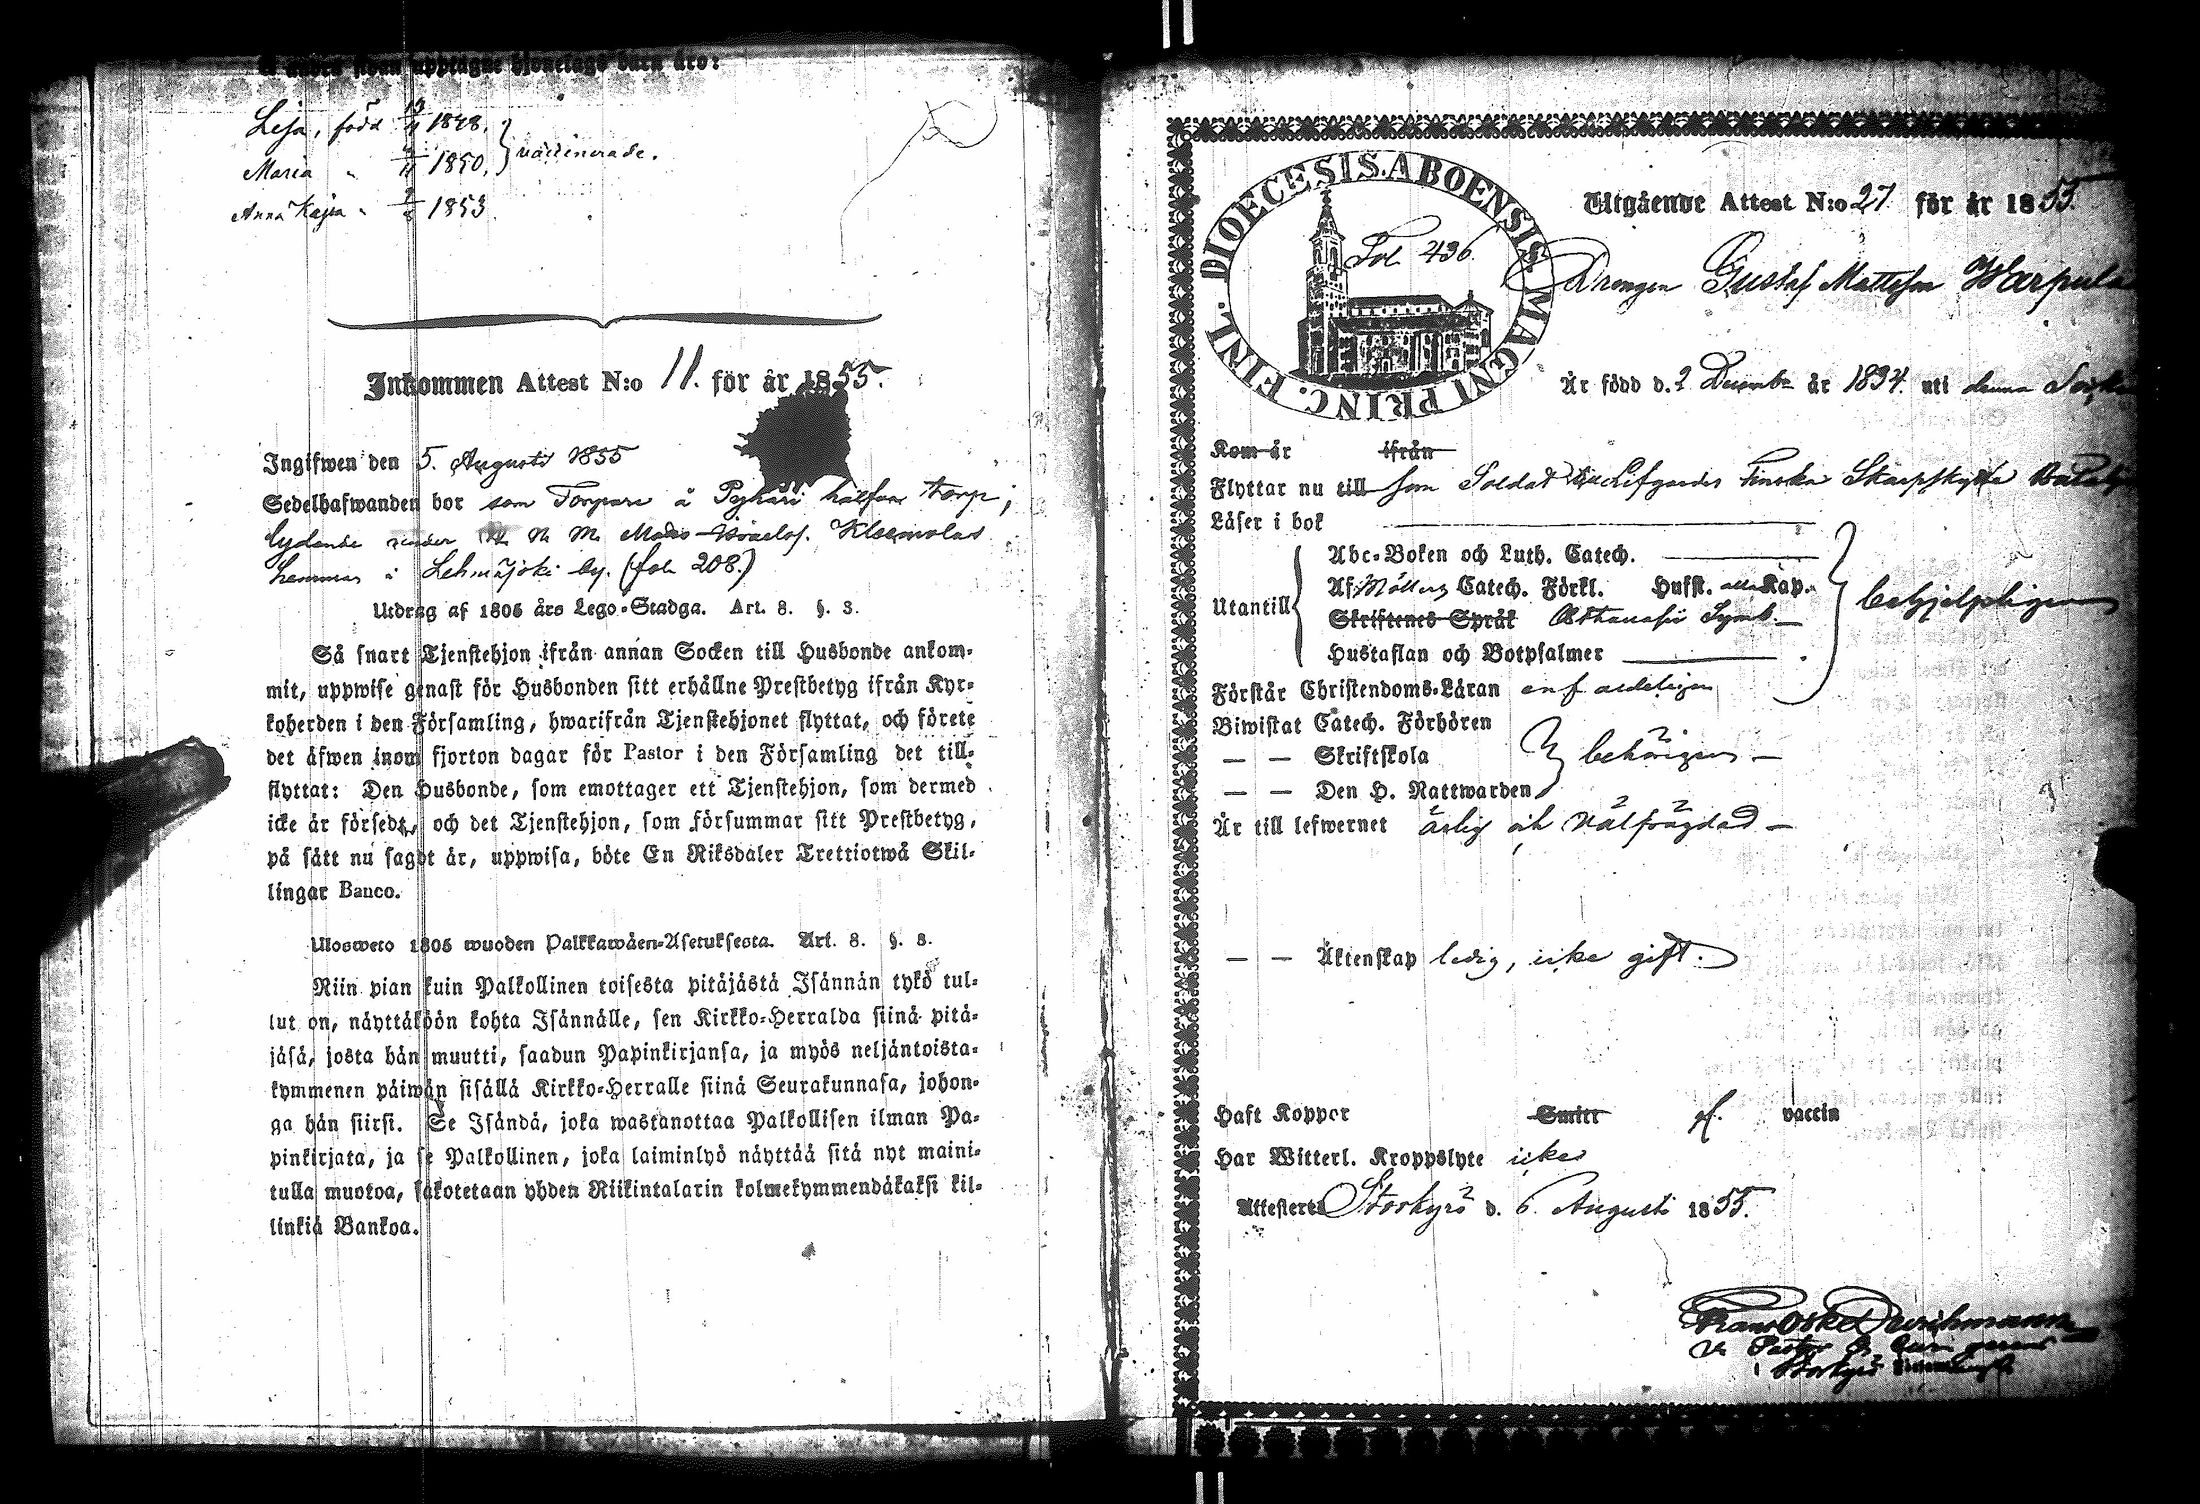 å andra sidan upptagne hjonelags barn äro:
Lisa, född 1848.
Maria " 1850. vaccinerade.
Anna Kajsa " 1853
Inkommen Attest N:o 11. för år 1855.
Ingifwen den 5. Augusti 1855
Sedelhafwanden bor som Torpare å Pyhäri hälfva torp,
lydande under Klemolas
hemman i Lehmäjoki by. (fol. 208.)
Utdrag af 1805 års Lego-Stadga. Art. 8. §. 3.
Så snart Tjenstehjon ifrån annan Socken till Husbonde ankom-
mit, uppwise genast för Husbonden sitt erhållne Prestbetyg ifrån Kyr-
koherden i den Församling, hwarifrån Tjenstehjonet flyttat, och förete
det äfwen inom fjorton dagar för Pastor i den Församling det till-
flyttat: Den Husbonde, som emottager ett Tjenstehjon, som dermed
icke är försedt, och det Tjenstehjon, som försummar sitt Prestbetyg,
på sätt nu sagdt är, uppwisa, böte En Riksdaler Trettiotwå Skil-
lingar Banco.
Ulosweto 1805 wuoden Palkkawäen-Asetuksesta. Art. 8. §. 3.
Niin pian kuin Palkollinen toisesta pitäjästä Isännän tykö tul-
lut on, näyttäköön kohta Isännälle, sen Kirkko-Herralda siinä pitä-
jäsä, josta hän muutti, saadun Papinkirjansa, ja myös neljäntoista-
kymmenen päiwän sisällä Kirkko-Herralle siinä Seurakunnasa, johon-
ga hän siirsi. Se Isändä, joka wastanottaa Palkollisen ilman Pa-
pinkirjata, ja se Palkollinen, joka laiminlyö näyttää sitä nyt maini-
tulla muotoa, sakotetaan yhden Riikintalarin kolmekymmendäkaksi kil-
linkiä Bankoa.
DIOECESIS. ABOENSIS. MAGNI PRINC. FINL.
Fol. 436.
Utgående Attest N:o 27 för år 1855.
Drengen Gustaf Mattsson Warpula
Är född d. 2 December år 1834. uti denna Socken
Kom år ifrån
Flyttar nu till som Soldat till Lifgardes Finska Skarpskytte Bataljon
Läser i bok
Utantill
Abc-Boken och Luth. Catech.
Af Möllers Catech. Förkl. Hufst. alla Kap.
Skriftenes Språk Athanasii Symb.
Hustaflan och Botpsalmer
behjelpligen
Förstår Christendoms-Läran enfaldeligen
Biwistat Catech. Förhören
— — Skriftskola behörigen —
— — Den H. Nattwarden
Är till lefwernet ärlig och wälfrägdad —
— — Äktenskap ledig, icke gift.
Haft Koppor Smitt vaccin
Har Witterl. Kroppslyte icke
Attesterar Storkyro d. 6. Augusti 1855.
Frans Oskar Durchmann